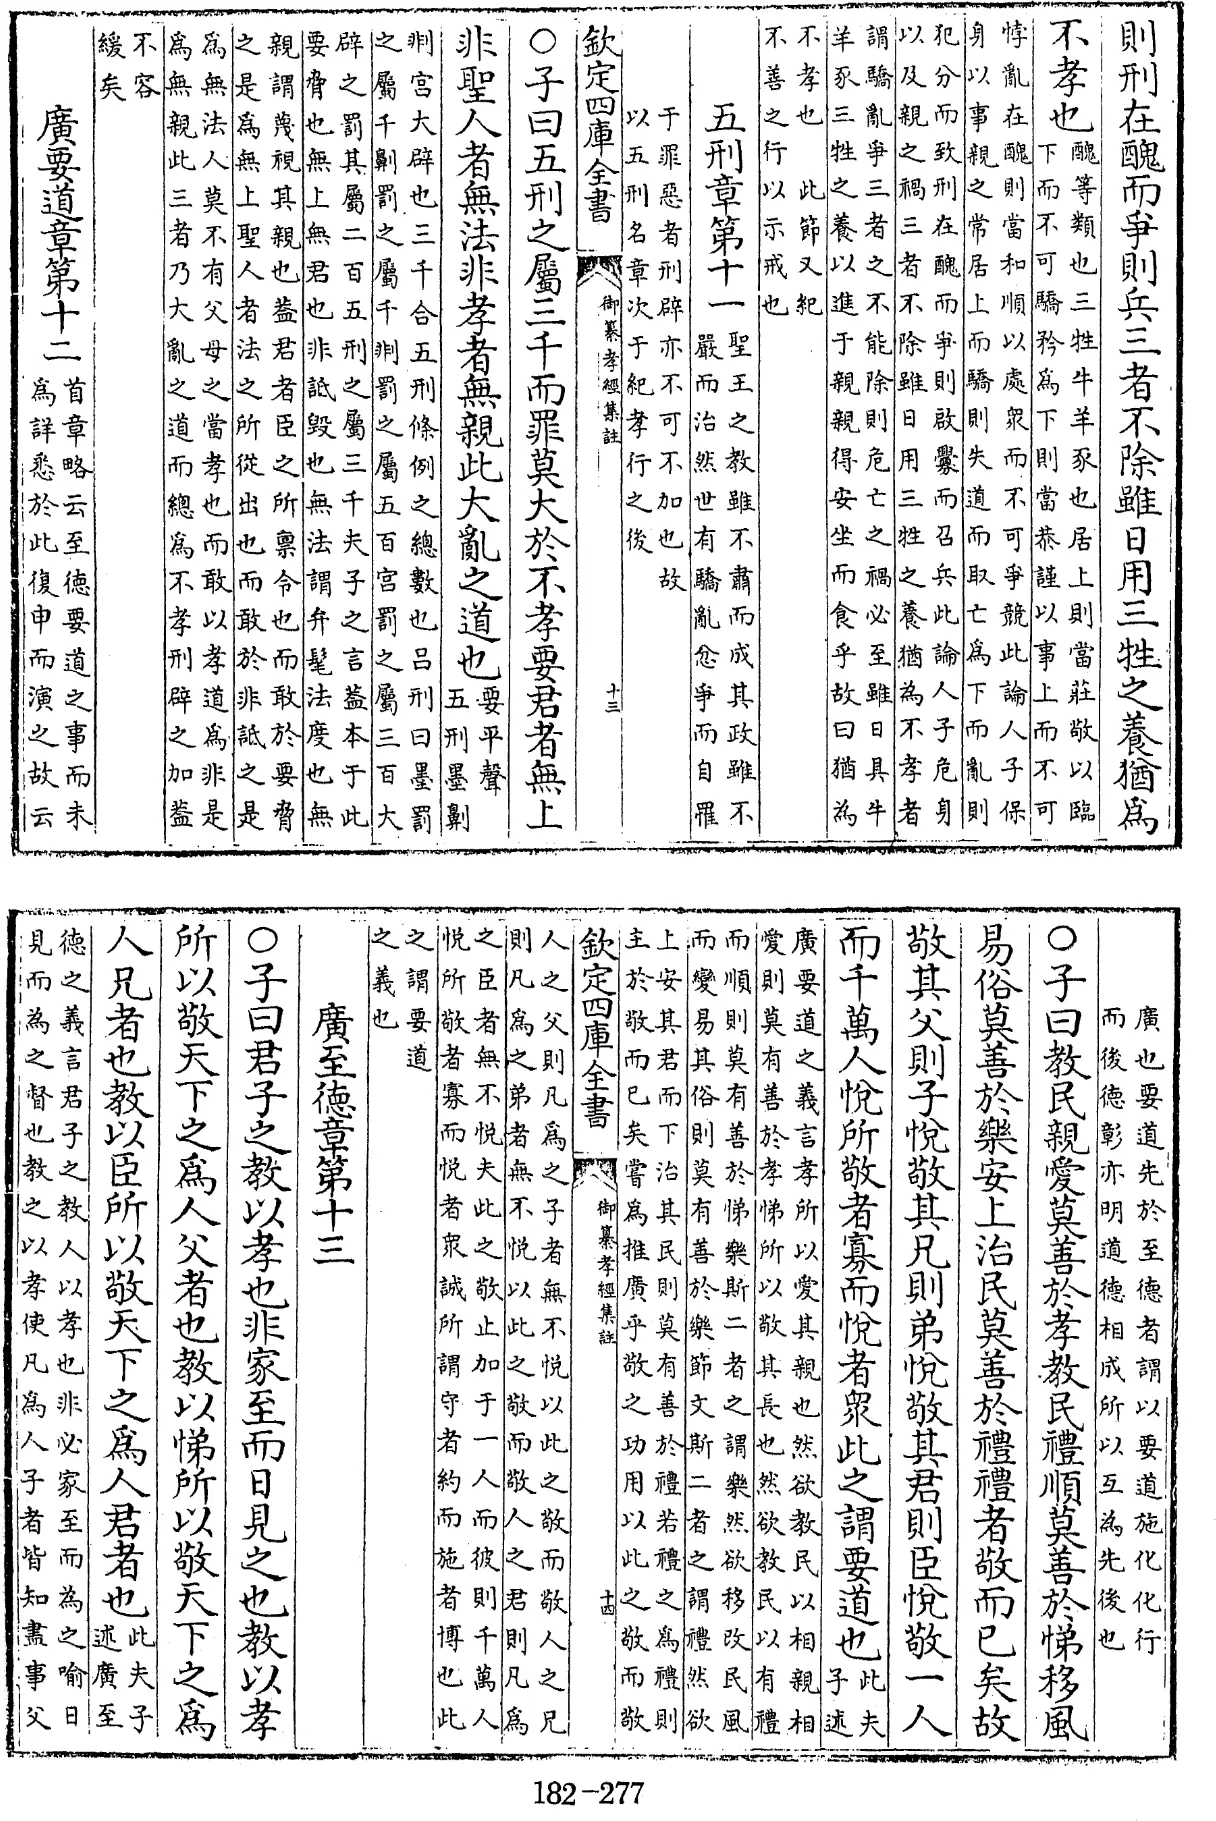 則刑在醜而爭則兵三者不除雖日用三牲之養猶爲
不孝也
醜等類也三牲牛羊豕也居上則當莊敬以臨
下而不可驕矜爲下則當恭謹以事上而不可
悖亂在醜則當和順以處衆而不可爭競此論人子保
身以事親之常居上而驕則失道而取亡爲下而亂則
犯分而致刑在醜而爭則啟釁而召兵此論人子危身
以及親之禍三者不除雖日用三牲之養猶為不孝者
謂驕亂爭三者之不能除則危亡之禍必至雖日具牛
羊豕三牲之養以進于親親得安坐而食乎故曰猶為
不孝也 此節又紀
不善之行以示戒也
五刑章第十一
聖王之教雖不肅而成其政雖不
嚴而治然世有驕亂忿爭而自罹
于罪惡者刑辟亦不可不加也故
以五刑名章次于紀孝行之後
欽定四庫全書
御纂孝經集註
十三
○子曰五刑之屬三千而罪莫大於不孝要君者無上
非聖人者無法非孝者無親此大亂之道也
要平聲
五刑墨劓
剕宮大辟也三千合五刑條例之總數也呂刑曰墨罰
之屬千劓罰之屬千剕罰之屬五百宮罰之屬三百大
辟之罰其屬二百五刑之屬三千夫子之言蓋本于此
要脅也無上無君也非詆毀也無法謂弁髦法度也無
親謂蔑視其親也蓋君者臣之所禀令也而敢於要脅
之是爲無上聖人者法之所從出也而敢於非詆之是
爲無法人莫不有父母之當孝也而敢以孝道爲非是
爲無親此三者乃大亂之道而總爲不孝刑辟之加蓋
不容
緩矣
廣要道章第十二
首章略云至德要道之事而未
爲詳悉於此復申而演之故云
廣也要道先於至德者謂以要道施化化行
而後德彰亦明道德相成所以互為先後也
○子曰教民親愛莫善於孝教民禮順莫善於悌移風
易俗莫善於樂安上治民莫善於禮禮者敬而已矣故
敬其父則子悅敬其兄則弟悅敬其君則臣悅敬一人
而千萬人悅所敬者寡而悅者衆此之謂要道也
此夫
子述
廣要道之義言孝所以愛其親也然欲教民以相親相
愛則莫有善於孝悌所以敬其長也然欲教民以有禮
而順則莫有善於悌樂斯二者之謂樂然欲移改民風
而變易其俗則莫有善於樂節文斯二者之謂禮然欲
上安其君而下治其民則莫有善於禮若禮之爲禮則
主於敬而已矣嘗爲推廣乎敬之功用以此之敬而敬
欽定四庫全書
御纂孝經集註
十四
人之父則凡爲之子者無不悅以此之敬而敬人之兄
則凡爲之弟者無不悅以此之敬而敬人之君則凡爲
之臣者無不悅夫此之敬止加于一人而彼則千萬人
悅所敬者寡而悅者衆誠所謂守者約而施者博也此
之謂要道
之義也
廣至德章第十三
○子曰君子之教以孝也非家至而日見之也教以孝
所以敬天下之爲人父者也教以悌所以敬天下之爲
人兄者也教以臣所以敬天下之爲人君者也
此夫子
述廣至
德之義言君子之教人以孝也非必家至而為之喻日
見而為之督也教之以孝使凡爲人子者皆知盡事父
182-277